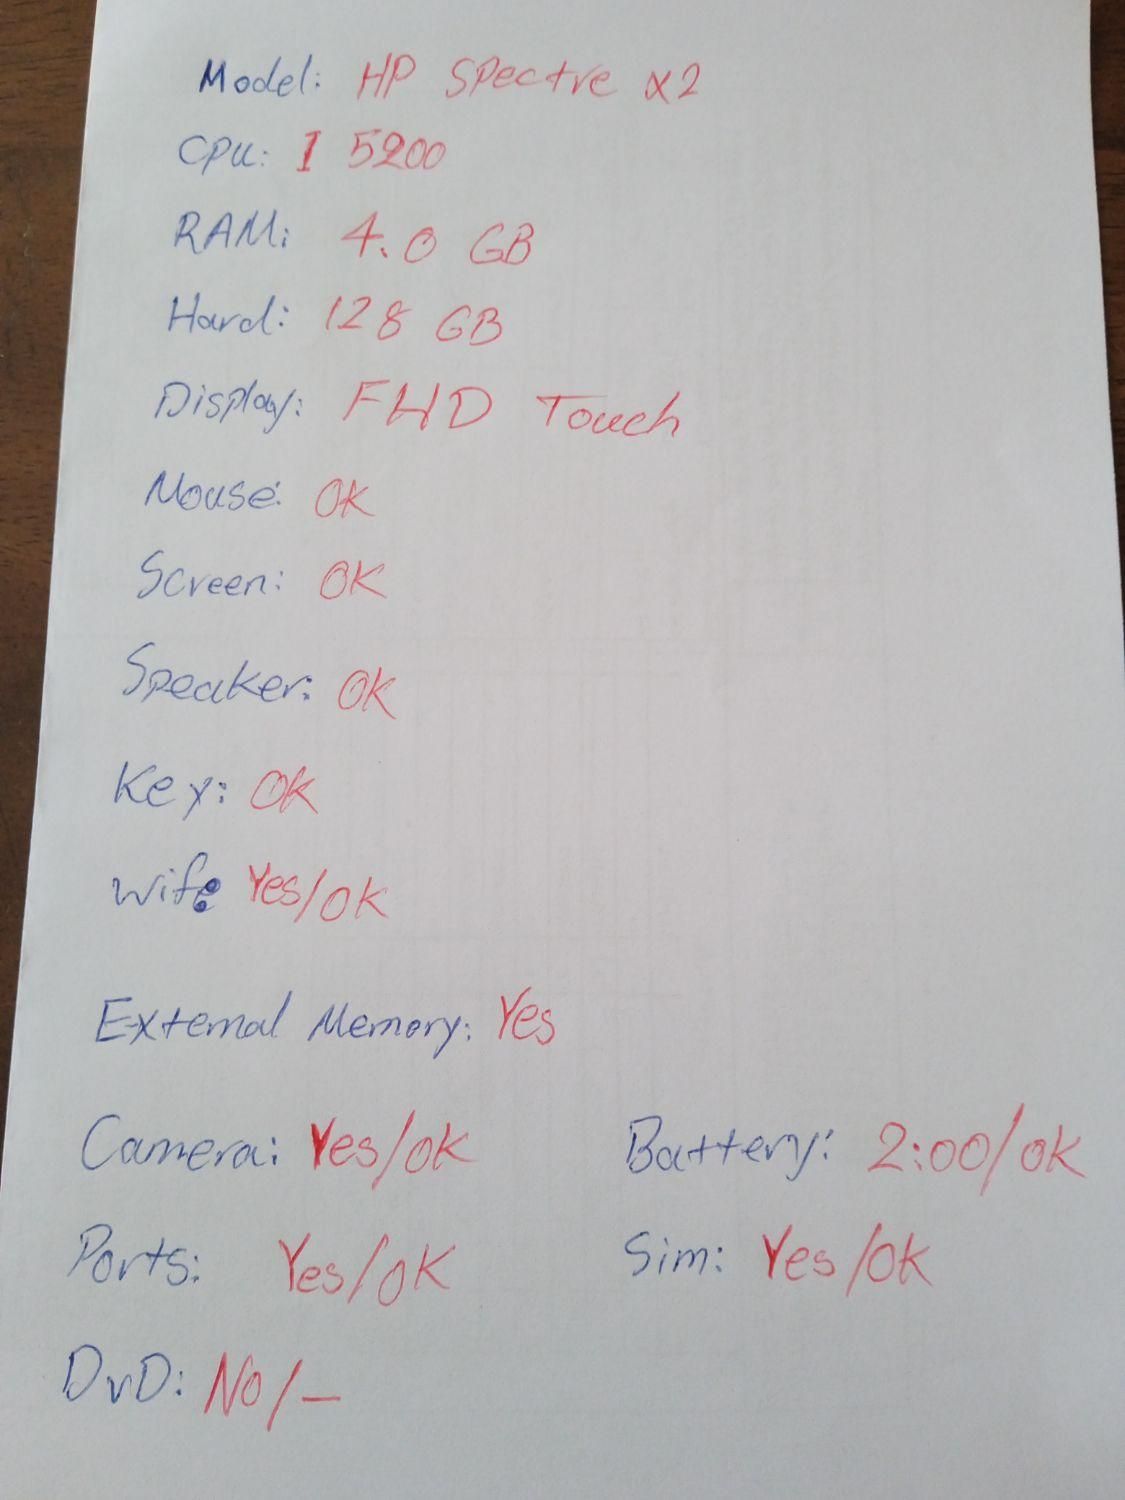 Model: HP Spectre x2
CPU: I 5200
RAM: 4.0 GB
Hard: 128 GB
Display: FHD Touch
Mouse: OK
Screen: OK
Speaker: OK
Key: OK
Wifi: Yes/OK
External Memory: Yes
Camera: Yes/OK Battery: 2:00/OK
Ports: Yes/OK Sim: Yes/OK
DvD: No/—